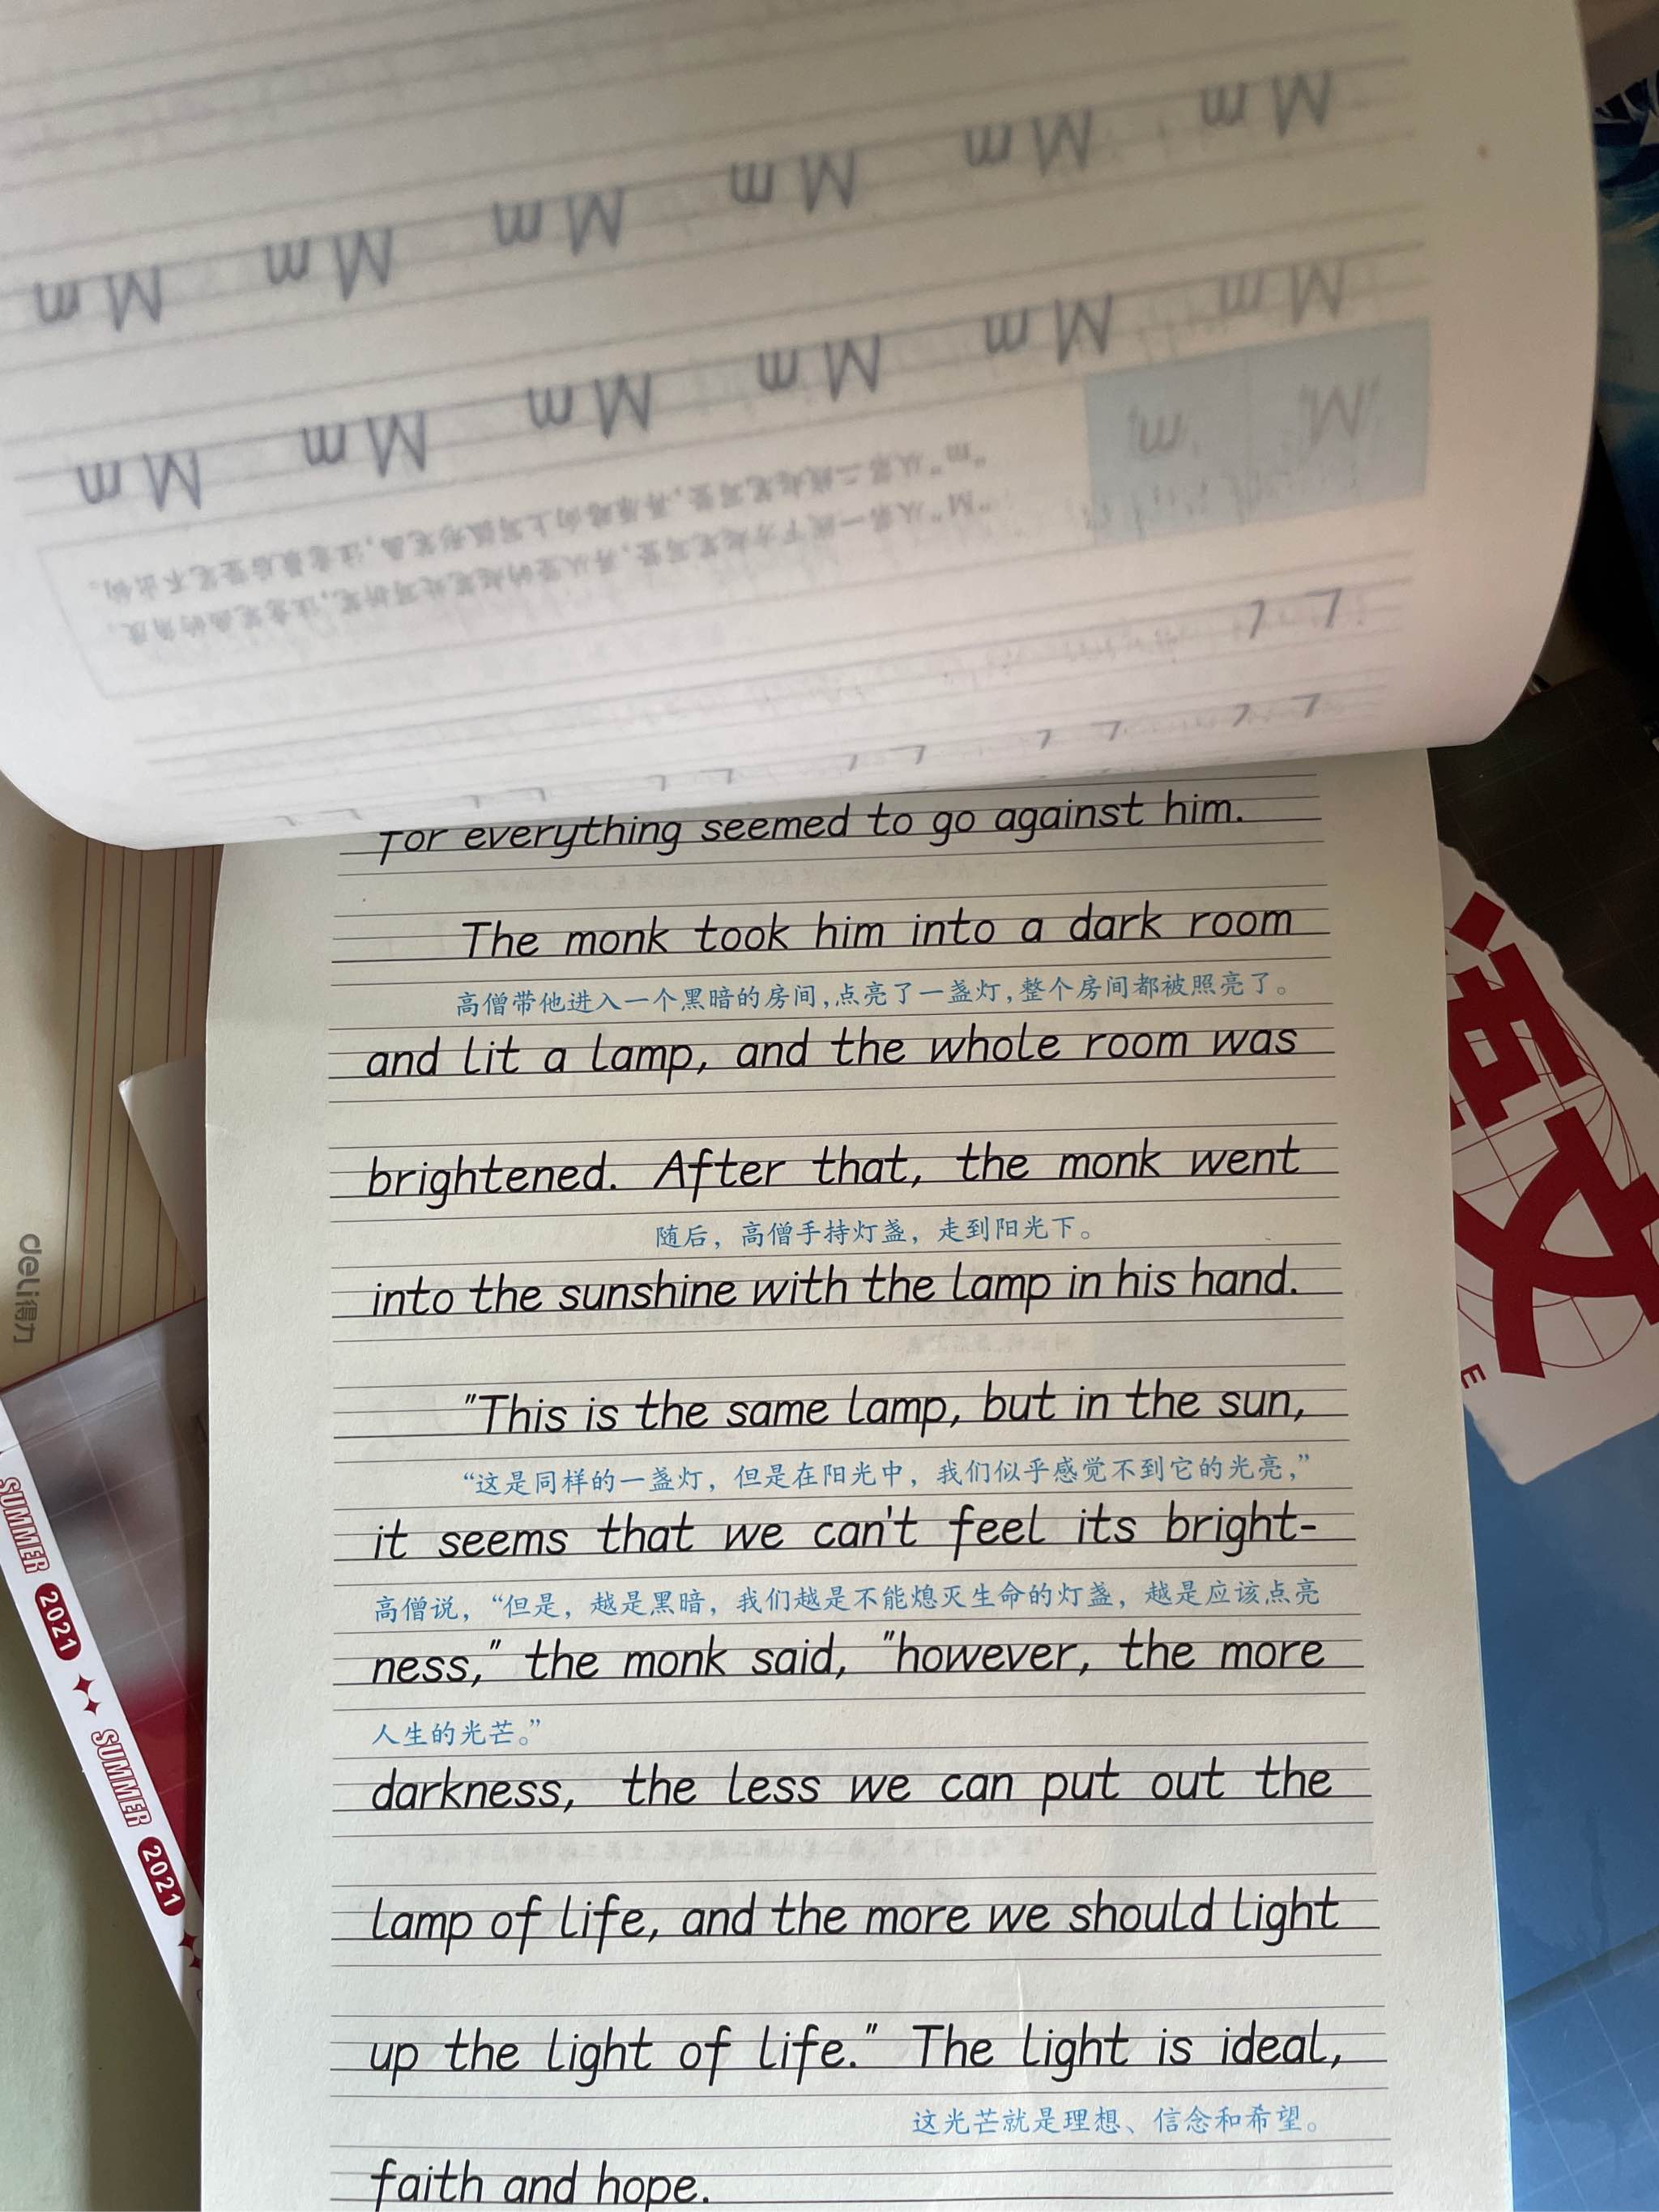 M m M m M m M m M m M m
M m M m M m M m M m M m
"M" "m"
"m"从第二线起笔写竖,再原路向上写弧形笔画,注意最后竖笔不出钩。
"M"从第一线下方起笔写竖,再从竖的起笔处写折笔,注意笔画的角度。
L L
for everything seemed to go against him.
The monk took him into a dark room
高僧带他进入一个黑暗的房间,点亮了一盏灯,整个房间都被照亮了。
and lit a lamp, and the whole room was
brightened. After that, the monk went
随后，高僧手持灯盏，走到阳光下。
into the sunshine with the lamp in his hand.
"This is the same lamp, but in the sun,
“这是同样的一盏灯，但是在阳光中，我们似乎感觉不到它的光亮，”
it seems that we can't feel its bright-
高僧说，“但是，越是黑暗，我们越是不能熄灭生命的灯盏，越是应该点亮
ness," the monk said, "however, the more
人生的光芒。”
darkness, the less we can put out the
lamp of life, and the more we should light
up the light of life." The light is ideal,
这光芒就是理想、信念和希望。
faith and hope.
deli得力
SUMMER 2021 SUMMER 2021
语文
E